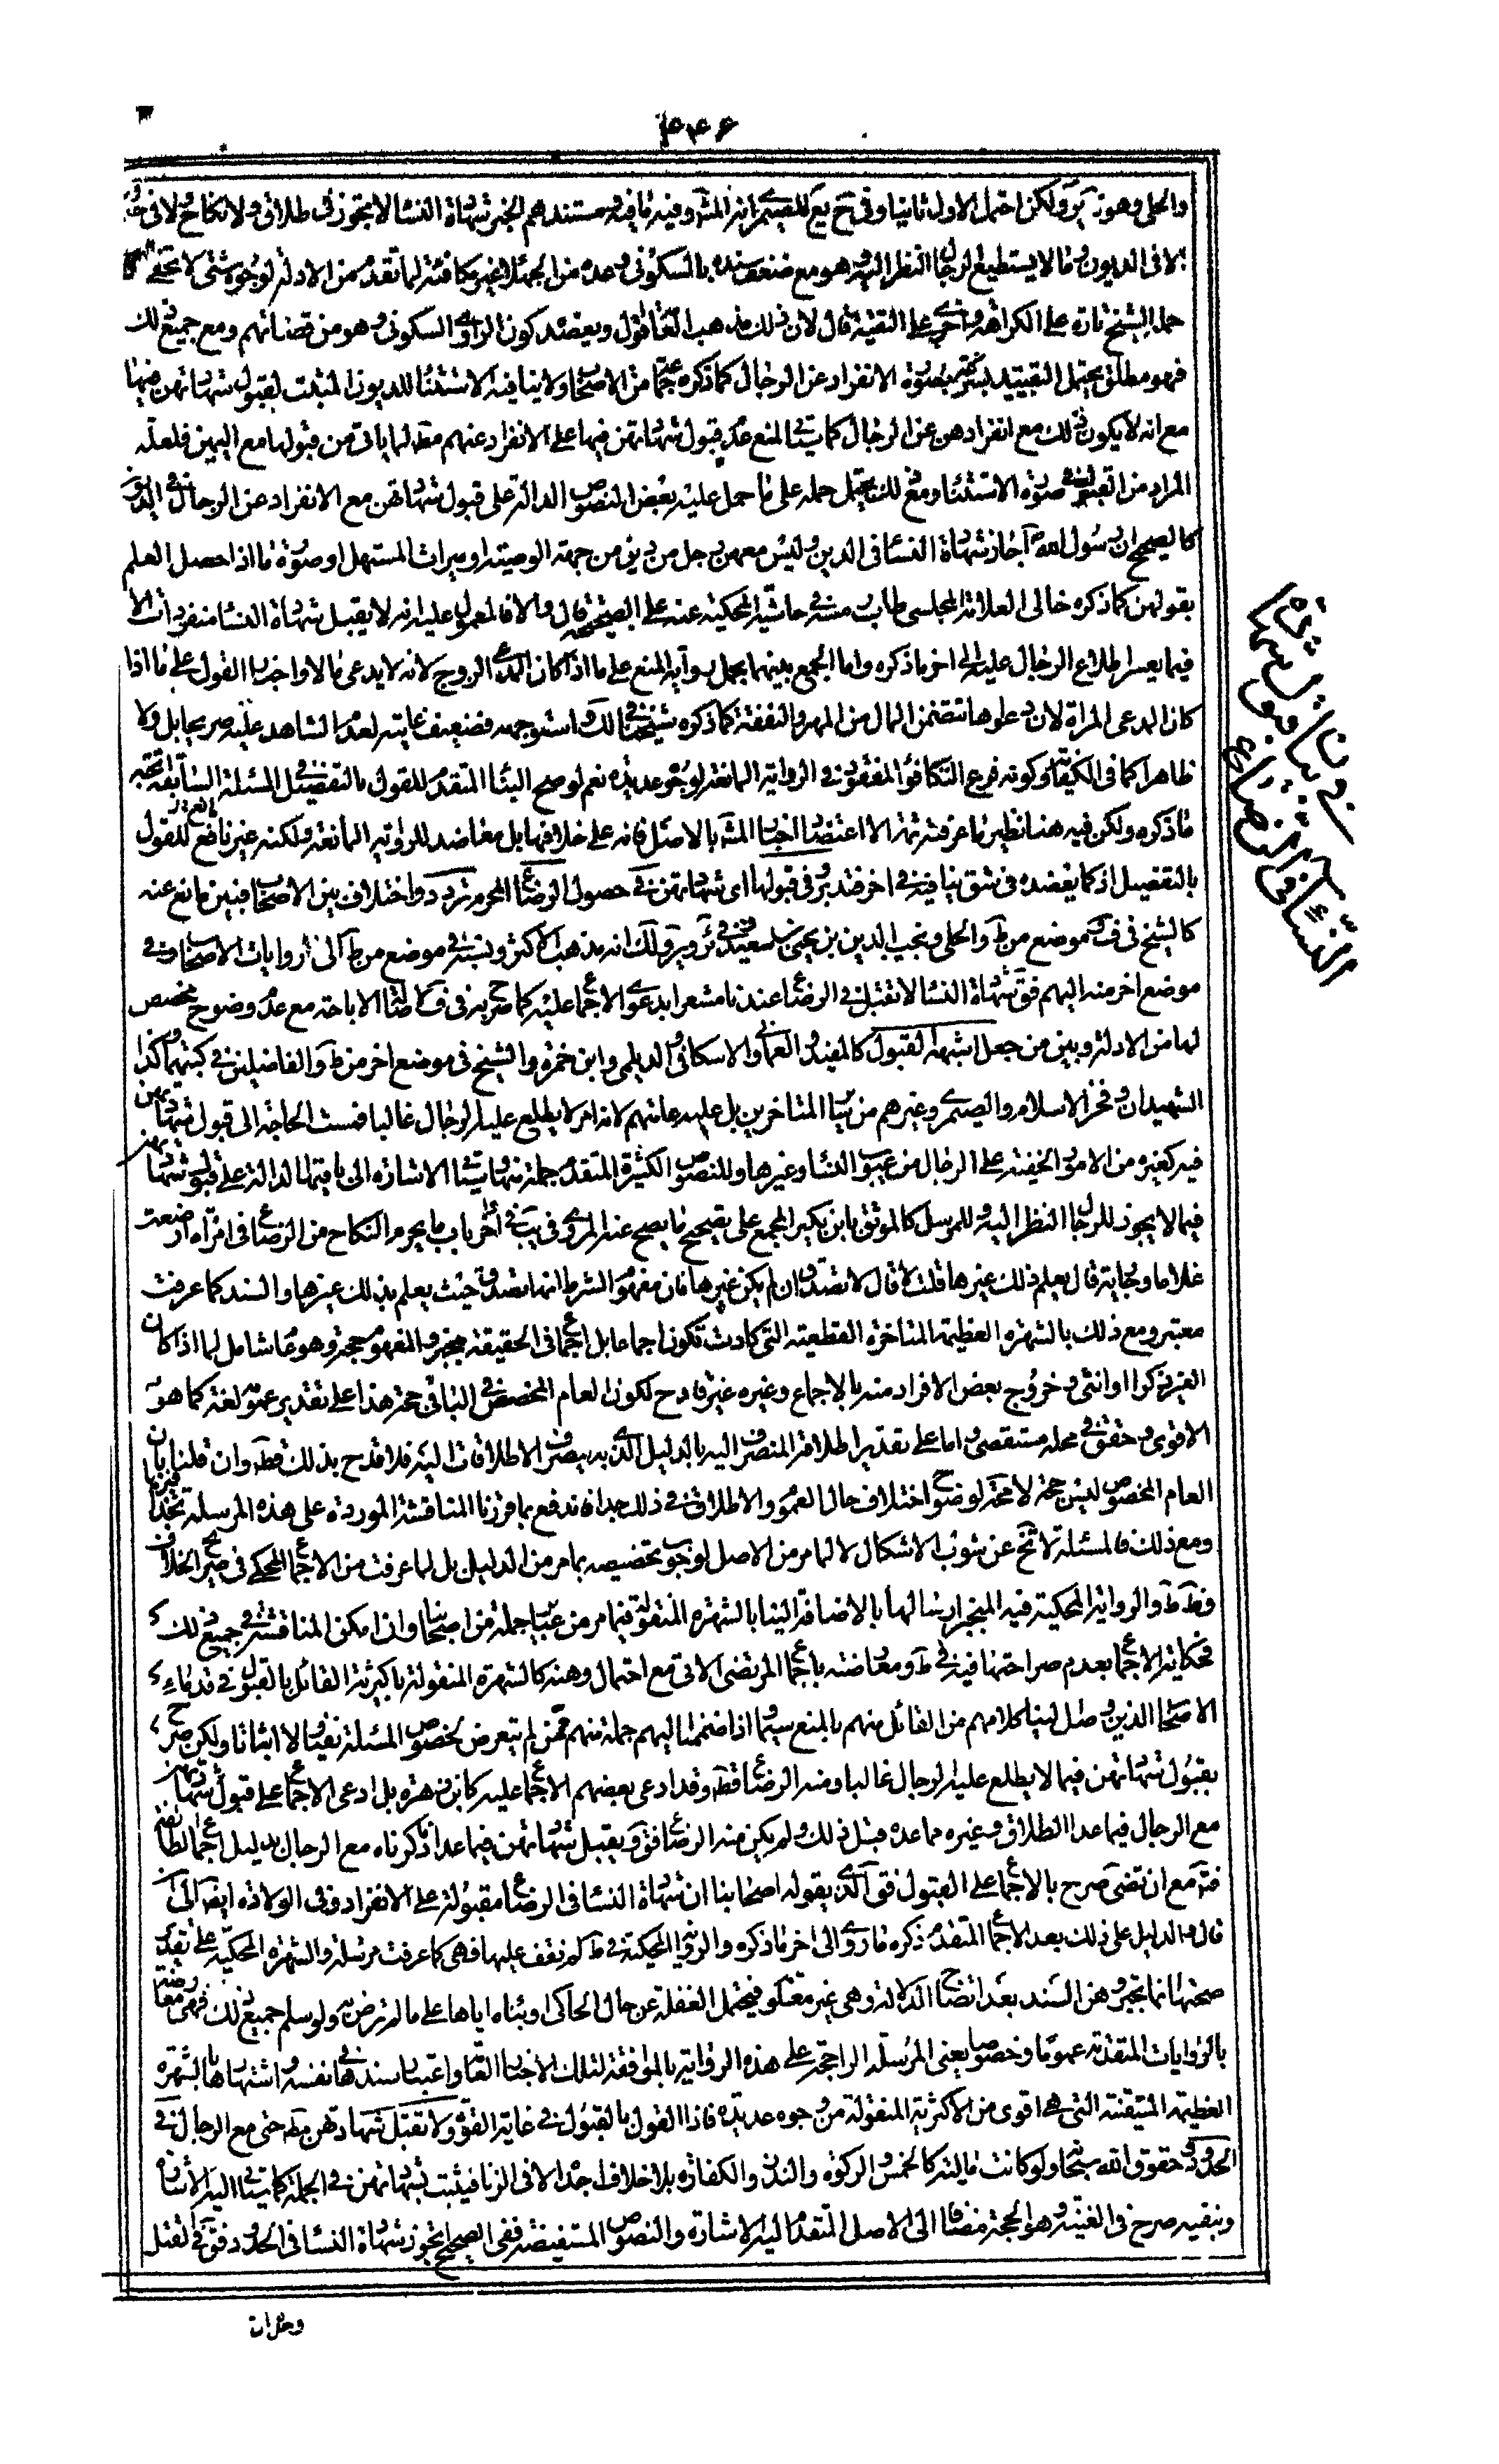 ۴۴۶
والحلي وهو ولكن احتمل الاول ثانيا وفي للصيمري انه المش وفيه ما فيه ومستندهم الخبر شهادة النسا لا تجوز في طلاق ولا نكاح ولا في
الا في الديون وما لا يستطيع الرجال النظر اليه وهو مع ضعف سنده بالسكوني وعده من الجهلا غير مكافئة لما تقدم من الادلة لوجوه شتى لا تخفى
حمله الشيخ تارة على الكراهة واخرى على التقية قال لان ذلك مذهب العامة اقول ويعضد كون الراوي السكوني وهو من قضاتهم ومع جميع ذلك
فهو مطلق يحتمل التقييد بصورة الانفراد عن الرجال كما ذكره من الاصحاب ولا ينافيه الاستثناء للديون المثبت لقبول شهادتهن فيها
مع انه لا يكون ذلك مع انفرادهن عن الرجال كما سيأتي المنع عدم قبول شهادتهن فيها على الانفراد عنهم مط لما يأتي من قبولها مع اليمين فلعله
المراد من القبول في صورة الاستثناء ومع ذلك يحتمل حمله على ما حمل عليه بعض النصوص الدالة على قبول شهادتهن مع الانفراد عن الرجال في الديون
كالصحيح ان رسول الله اجاز شهادة النسا في الدين وليس معهن رجل من دين من جهة الوصية او ميراث المستهل او صورة ما اذا حصل العلم
بقولهن كما ذكره خالي العلامة المجلسي طاب مسه في حاشيته المحكية عنه على الصحيحة قال والا فالمعمول عليه انه لا يقبل شهادة النسا منفردات الا
فيما يعسر اطلاع الرجال عليه الى اخر ما ذكره واما الجمع بينهما بحمل رواية المنع على ما اذا كان المدعي الزوج لانه لا يدعي مالا واخبار القول على ما اذا
كان المدعي المراة لان دعواها تتضمن المال من المهر والنفقة كما ذكره شيخنا في لك واستوجهه فضعيف غايته لعدم الشاهد عليه صريحا بل ولا
ظاهرا كما في الكفاية وكونه فرع التكافؤ المفقود في الرواية المانعة لوجوه عديدة نعم لو صح البناء المتقدم للقول بالتفصيل في المسئلة السابقة اتجه
ما ذكره ولكن فيه هنا نظير ما عرفته ثمة الا اعتضاد اخبار المش بالاصل فانه على خلافها بل معاضد للرواية المانعة ولكنه غير نافع للقول
بالتفصيل اذ كما يعضده في شق ينافيه في اخر فتدبر وفي قبولها اي شهادتهن في حصول الرضاع المحرم تردد واختلاف بين الاصحاب فبين مانع عنه
كالشيخ في ف وموضع من ط والحلي ونجيب الدين بن يحيى بن سعيد في ئر وير ولك انه مذهب الاكثر ونسبته في موضع من ط الى روايات الاصحاب وفي
موضع اخر منه اليهم فق شهادة النسا لا تقبل في الرضاع عندنا مشعرا بدعوى الاجماع عليه كما صرح به في ف لاصالة الاباحة مع عدم وضوح مخصص
لها من الادلة وبين من جعل اشبهه القبول كالمفيد والعماني والاسكافي والديلمي وابن حمزة والشيخ في موضع اخر من ط والفاضلين في كتبهما وكذا
الشهيدان وفخر الاسلام والصيمري وغيرهم من سائر المتاخرين بل عليه عامتهم لانه امر لا يطلع عليه الرجال غالبا فمست الحاجة الى قبول شهادتهن
فيه كغيره من الامور الخفية على الرجال من عيوب النسا وغيرها وللنصوص الكثيرة المتقدم جملة منها وسيأتي الاشارة الى باقيها الدالة على قبول شهادتهن
فيما لا يجوز للرجال النظر اليه وللمرسل كالموثق بابن بكير المجمع على تصحيح ما يصح عنه المروي في يب في اخر باب ما يحرم من النكاح من الرضاع في امراة ارضعت
غلاما وجارية قال يعلم ذلك غيرها قلت لا قال لا تصدق ان لم يكن غيرها فان مفهوم الشرط انها تصدق حيث يعلم بذلك غيرها والسند كما عرفت
معتبر ومع ذلك بالشهرة العظيمة المتاخرة القطعية التي كادت تكون اجماعا بل اجماع في الحقيقة منجبر والمفهوم حجة وهو عام شامل لما اذا كان
الغير ذكرا او انثى وخروج بعض الافراد منه بالاجماع وغيره غير قادح لكون العام المخصص في الباقي حجة هذا على تقدير عمومه لغة كما هو
الاقوى وحقق في محله مستقصى واما على تقدير اطلاقه المنصرف اليه بالدليل الذي به يصرف الاطلاقات اليه فلا قدح بذلك قط وان قلنا بان
العام المخصوص ليس حجة لا محة لوضوح اختلاف حال العموم والاطلاق في ذلك جدا فاندفع بما قررنا المناقشة الموردة على هذه المرسلة
ومع ذلك فالمسئلة لا تخ عن شوب الاشكال لا لما مر من الاصل لوجوب تخصيصه بما مر من الدليلين بل لما عرفت من الاجماع المحكي في صريح الخلاف
وظ ط والرواية المحكية فيه المنجبر ارسالها بالاضافة الينا بالشهرة المنقولة فيما مر من عبائر جملة من اصحابنا وان امكن المناقشة في جميع ذلك
فحكاية الاجماع بعدم صراحتها فيه في ط ومعارضته باجماع المرتضى الاتي مع احتمال وهنه كالشهرة المنقولة باكثرية القائل بالقبول في قدماء
الاصحاب الذين وصل الينا كلامهم من القائل منهم بالمنع سيما اذا ضممنا اليهم جملة منهم ممن لم يتعرض لخصوص المسئلة نفيا ولا اثباتا ولكن صرح
بقبول شهادتهن فيما لا يطلع عليه الرجال غالبا ومنه الرضاع قط وقد ادعى بعضهم الاجماع عليه كابن زهرة بل ادعى الاجماع على قبول شهادتهن
مع الرجال فيما عدا الطلاق وغيره مما عده قبل ذلك ولم يكن منه الرضاع فق ويقبل شهادتهن فيما عدا ما ذكرناه مع الرجال بدليل اجماع الطائفة
فتـ مع ان تضى صرح بالاجماع على القبول فق الذي يقوله اصحابنا ان شهادة النسا في الرضاع مقبولة على الانفراد وفي الولادة ايض الى ان
قال والدليل على ذلك بعد الاجماع المتقدم ذكره ما روي الى اخر ما ذكره والرواية المحكية في ط لم نقف عليها فهي كما عرفت مرسلة والشهرة المحكية على تقدير
صحتها انما تجبر وهن السند بعد اتضاح الدلالة وهي غير معلومة فيحتمل الغفلة عن حال الحاكي وبنائه اياها على ما لم نرض به ولو سلم جميع ذلك فهي معارضة
بالروايات المتقدمة عموما وخصوصا يعني المرسلة الراجحة على هذه الرواية بالموافقة لتلك الاخبار العامة واعتبار سندها في نفسه واشتهارها بالشهرة
العظيمة المتيقنة التي هي اقوى من الاكثرية المنقولة من وجوه عديدة فاذا القول بالقبول في غاية القوة ولا تقبل شهادتهن مط حتى مع الرجال في
الحدود وحقوق الله سبحانه ولو كانت مالية كالخمس والزكوة والنذر والكفارة بلا خلاف اجده الا في الزنا فيثبت بشهادتهن في الجملة كما سيأتي اليه الاشارة
وبنفيه صرح في الغنية وهو الحجة مضافا الى الاصل المتقدم اليه الاشارة والنصوص المستفيضة ففي الصحيح اتجوز شهادة النسا في الحدود فق في القتل
وحده ان